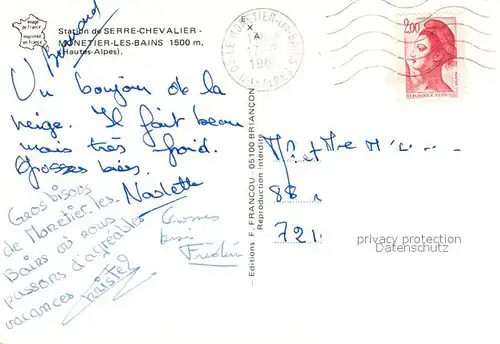 Image
de France
Imprimée
en France
Station de SERRE-CHEVALIER -
MONETIER-LES-BAINS 1500 m,
(Hautes-Alpes).
Bernard
Un bonjour de la
neige. Il fait beau
mais très froid.
Grosses bises.
Gros bisous
de Monetier-les-
Bains où nous
passons d'agréables
vacances
Christel
Grosses
bises
Frédéric
- Editions F. FRANCOU, 05100 BRIANÇON
Reproduction interdite
LE MONETIER-LES-BAINS
2,00
REPUBLIQUE FRANÇAISE
Mr et Mme
88
721
privacy protection
Datenschutz